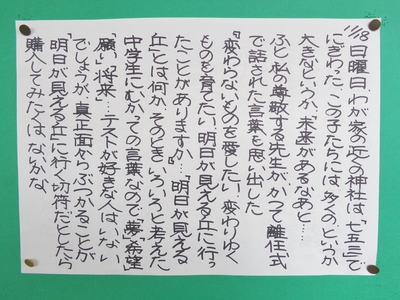 11/18
日曜日、わが家の近くの神社は「七五三」で
にぎわった。この子たちには、多くの、というか
大きなというか、「未来」があるなあと…
ふと、私の尊敬する先生が、かつて離任式
で話された言葉を思い出した
『変わらないものを愛したい。変わりゆく
ものを育てたい。明日が見える丘に行っ
たことがありますか…』「明日が見える
丘」とは何か。そのとき、いろいろと考えた
中学生にむかっての言葉なので「夢」「希望」
「願い」「将来」…テストが好きな人はいない
でしょうが、真正面からぶつかることが
「明日が見える丘」に行く切符だとしたら
購入してみたくはないかな